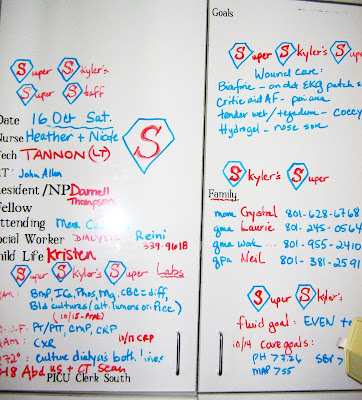 Super Skyler's
Super Staff
Date 16 Oct Sat.
Nurse Heather + Nicole
Tech TANNON (LT)
RT: John Allen
Resident/NP Darnell
Thompson
Fellow
Attending Mara
Social Worker DIALYSIS Reini
339-9618
Child Life Kristen
Super Skyler's Super Labs
Am: BMP, ICa, Phos, Mg, CBC c diff,
Bld cultures (alt. lumens or PICC)
(10/15-Pink)
PT/PTT, CMP, CRP
Am: CXR 10/17 CRP
culture dialysis both lines
Abd US + CT Scan
PICU Clerk South
Goals
Super Skyler's Super
Wound care:
Biafine - on old EKG patch s
Critic aid AF - peri area
tender wet / tegaderm - coccy
Hydrogel - nose sore
Skyler's Super
Family
mom Crystal 801-628-6768
gma Laurie 801-245-0564
gma work ... 801-955-2410
gpa Neil 801-381-2591
Super Skyler's
fluid goal: EVEN
10/14 care goals:
PH > 7.26 SBP >
MAP > 55